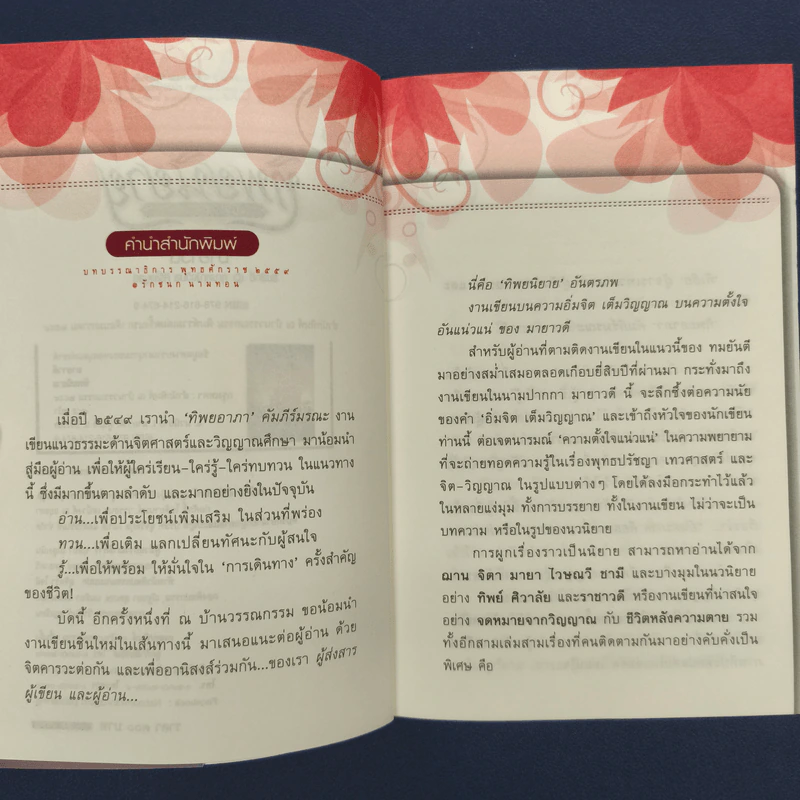 คำนำสำนักพิมพ์
บทบรรณาธิการ พุทธศักราช ๒๕๕๔
๑รักชนก นามทอน
เมื่อปี ๒๕๔๙ เรานำ ‘ทิพยอาภา’ คัมภีร์มรณะ งาน
เขียนแนวธรรมะด้านจิตศาสตร์และวิญญาณศึกษา มาน้อมนำ
สู่มือผู้อ่าน เพื่อให้ผู้ใคร่เรียน-ใคร่รู้-ใคร่ทบทวน ในแนวทาง
นี้ ซึ่งมีมากขึ้นตามลำดับ และมากอย่างยิ่งในปัจจุบัน
อ่าน...เพื่อประโยชน์เพิ่มเสริม ในส่วนที่พร่อง
ทวน...เพื่อเติม แลกเปลี่ยนทัศนะกับผู้สนใจ
รู้...เพื่อให้พร้อม ให้มั่นใจใน ‘การเดินทาง’ ครั้งสำคัญ
ของชีวิต!
บัดนี้ อีกครั้งหนึ่งที่ ณ บ้านวรรณกรรม ขอน้อมนำ
งานเขียนชิ้นใหม่ในเส้นทางนี้ มาเสนอแนะต่อผู้อ่าน ด้วย
จิตคารวะต่อกัน และเพื่ออานิสงส์ร่วมกัน...ของเรา ผู้ส่งสาร
ผู้เขียน และผู้อ่าน...
นี่คือ ‘ทิพยนิยาย’ อันตรภพ
งานเขียนบนความอิ่มจิต เต็มวิญญาณ บนความตั้งใจ
อันแน่วแน่ ของ มายาวดี
สำหรับผู้อ่านที่ตามติดงานเขียนในแนวนี้ของ ทมยันตี
มาอย่างสม่ำเสมอตลอดเกือบยี่สิบปีที่ผ่านมา กระทั่งมาถึง
งานเขียนในนามปากกา มายาวดี นี้ จะลึกซึ้งต่อความนัย
ของคำ ‘อิ่มจิต เต็มวิญญาณ’ และเข้าถึงหัวใจของนักเขียน
ท่านนี้ ต่อเจตนารมณ์ ‘ความตั้งใจแน่วแน่’ ในความพยายาม
ที่จะถ่ายทอดความรู้ในเรื่องพุทธปรัชญา เทวศาสตร์ และ
จิต-วิญญาณ ในรูปแบบต่างๆ โดยได้ลงมือกระทำไว้แล้ว
ในหลายแง่มุม ทั้งการบรรยาย ทั้งในงานเขียน ไม่ว่าจะเป็น
บทความ หรือในรูปของนวนิยาย
การผูกเรื่องราวเป็นนิยาย สามารถหาอ่านได้จาก
ฌาน จิตา มายา ไวษณวี ชามี และบางมุมในนวนิยาย
อย่าง ทิพย์ ศิวาลัย และราชาวดี หรืองานเขียนที่น่าสนใจ
อย่าง จดหมายจากวิญญาณ กับ ชีวิตหลังความตาย รวม
ทั้งอีกสามเล่มสามเรื่องที่คนติดตามกันมาอย่างคับคั่งเป็น
พิเศษ คือ